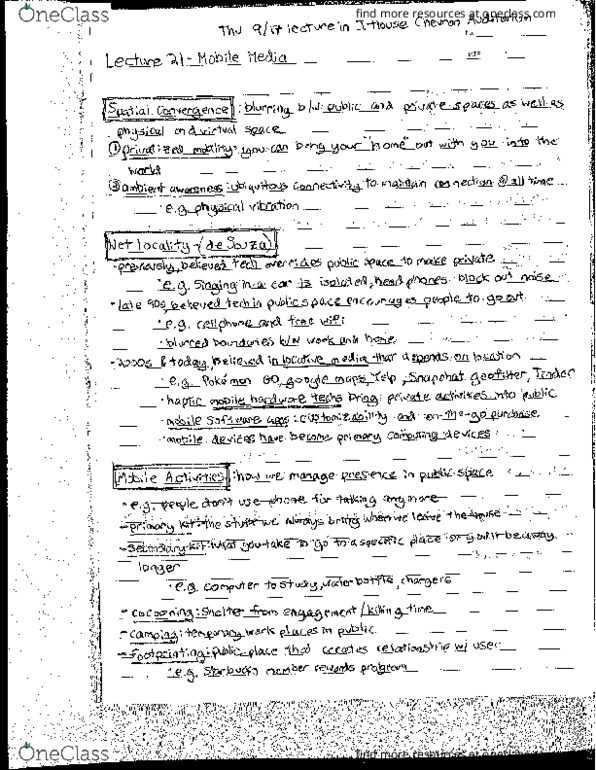 OneClass
find more resources at oneclass.com
Thu 9/17 lecture in I-House Chevron Auditorium
Lecture 21 - Mobile Media
Spatial Convergence: blurring b/w public and private spaces as well as
physical and virtual space
① privatized mobility: you can bring your "home" out with you into the
world
② ambient awareness: ubiquitous connectivity to maintain connection @ all time
e.g. physical vibration
Net locality - (de Souza)
- previously, believed tech overrides public space to make private
• e.g. Singing in a car is isolated, headphones block out noise
- late 90s, believed tech in public space encourages people to go out
• e.g. cellphone and free wifi
• blurred boundaries b/w work and home
- 2000s & today, believed in locative media that depends on location
• e.g. Pokémon GO, google maps, Yelp, Snapchat geofilter, Tinder
• haptic mobile hardware techs bring private activities into public
• mobile software apps: customizability and on-the-go purchase
• mobile devices have become primary computing devices
Mobile Activities: how we manage presence in public space
- e.g. people don't use phone for talking anymore
- primary kit: the stuff we always bring when we leave the house
- secondary kit: what you take to go to a specific place or you'll be away
longer
• e.g. computer to study, water bottle, chargers
- cocooning: shelter from engagement/killing time
- camping: temporary work places in public
- footprinting: public place that creates relationship w/ user
• e.g. Starbucks member rewards program
OneClass
find more resources at oneclass.com